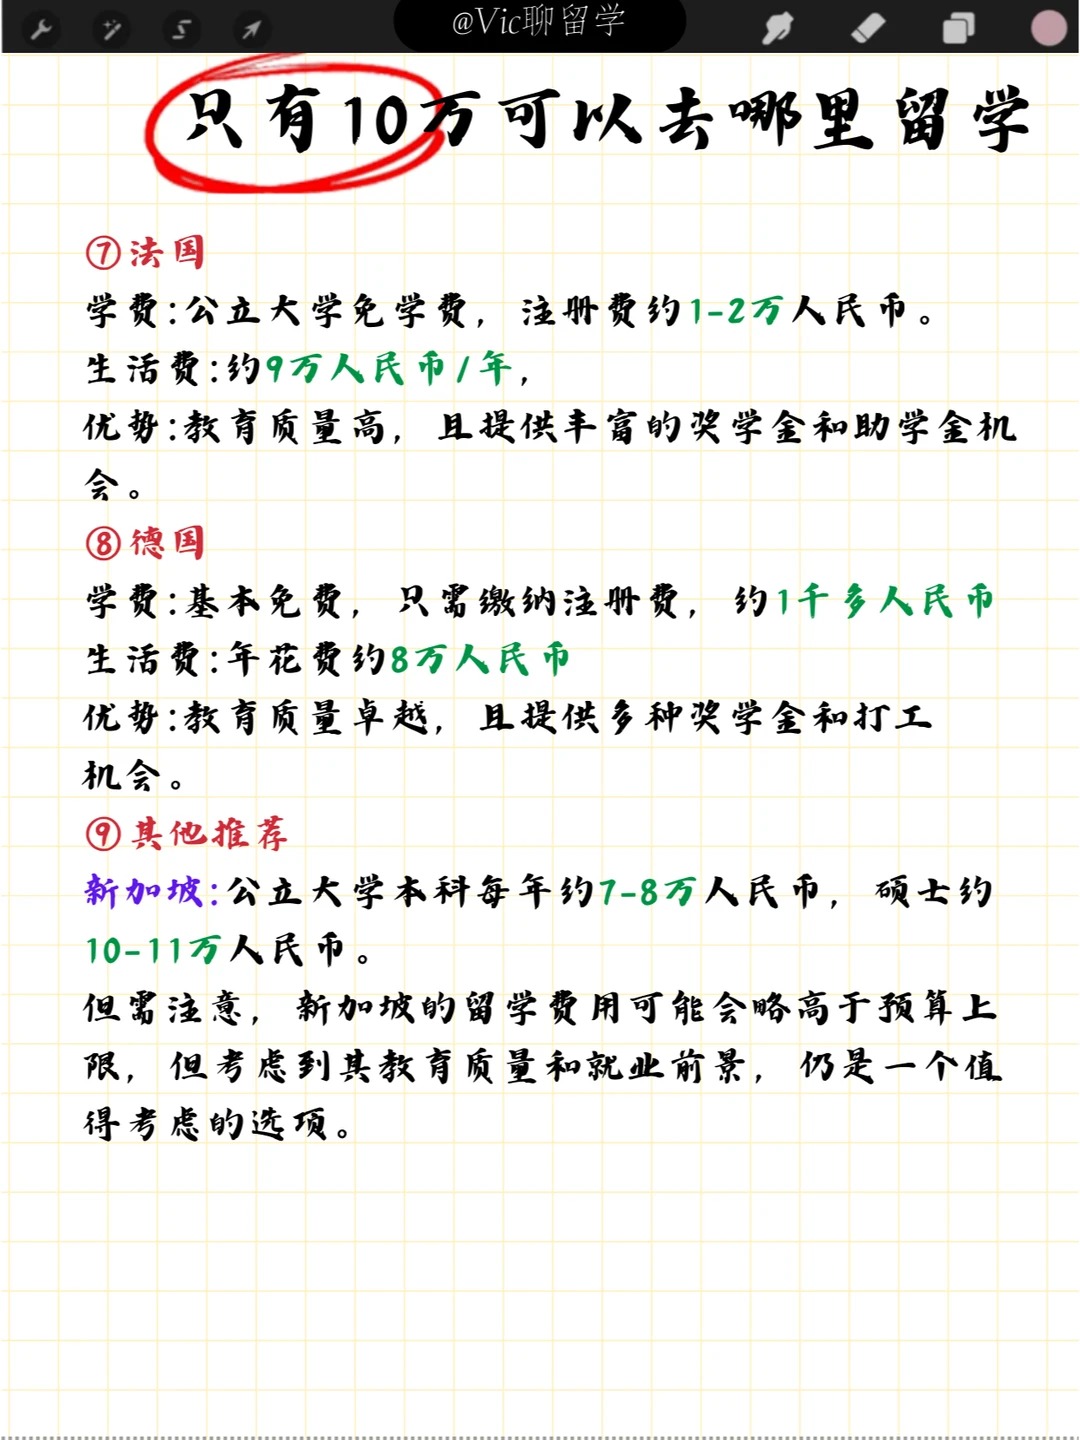 @Vic聊留学
只有10万可以去哪里留学
⑦法国
学费:公立大学免学费，注册费约1-2万人民币。
生活费:约9万人民币/年，
优势:教育质量高，且提供丰富的奖学金和助学金机
会。
⑧德国
学费:基本免费，只需缴纳注册费，约1千多人民币
生活费:年花费约8万人民币
优势:教育质量卓越，且提供多种奖学金和打工
机会。
⑨其他推荐
新加坡:公立大学本科每年约7-8万人民币，硕士约
10-11万人民币。
但需注意，新加坡的留学费用可能会略高于预算上
限，但考虑到其教育质量和就业前景，仍是一个值
得考虑的选项。